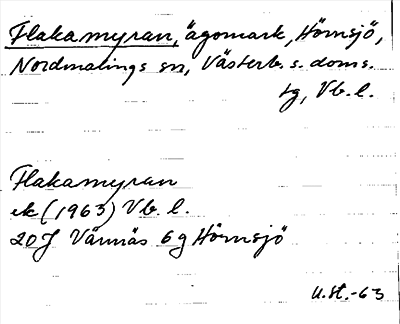 Flakamyran, ägomark, Hörnsjö,
Nordmalings sn, Västerb. s. doms.
tg, Vb. l.
Flakamyran
ek (1963) Vb. l.
20J Vännäs 6g Hörnsjö
U.st.-63